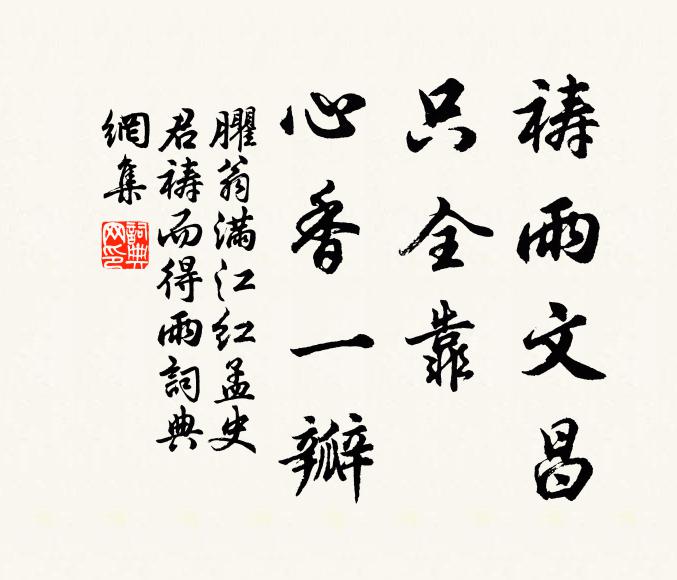 祷雨文昌
只全靠
心香一瓣
臞翁满江红孟史
君祷而得雨詞典
網集
詞典网印